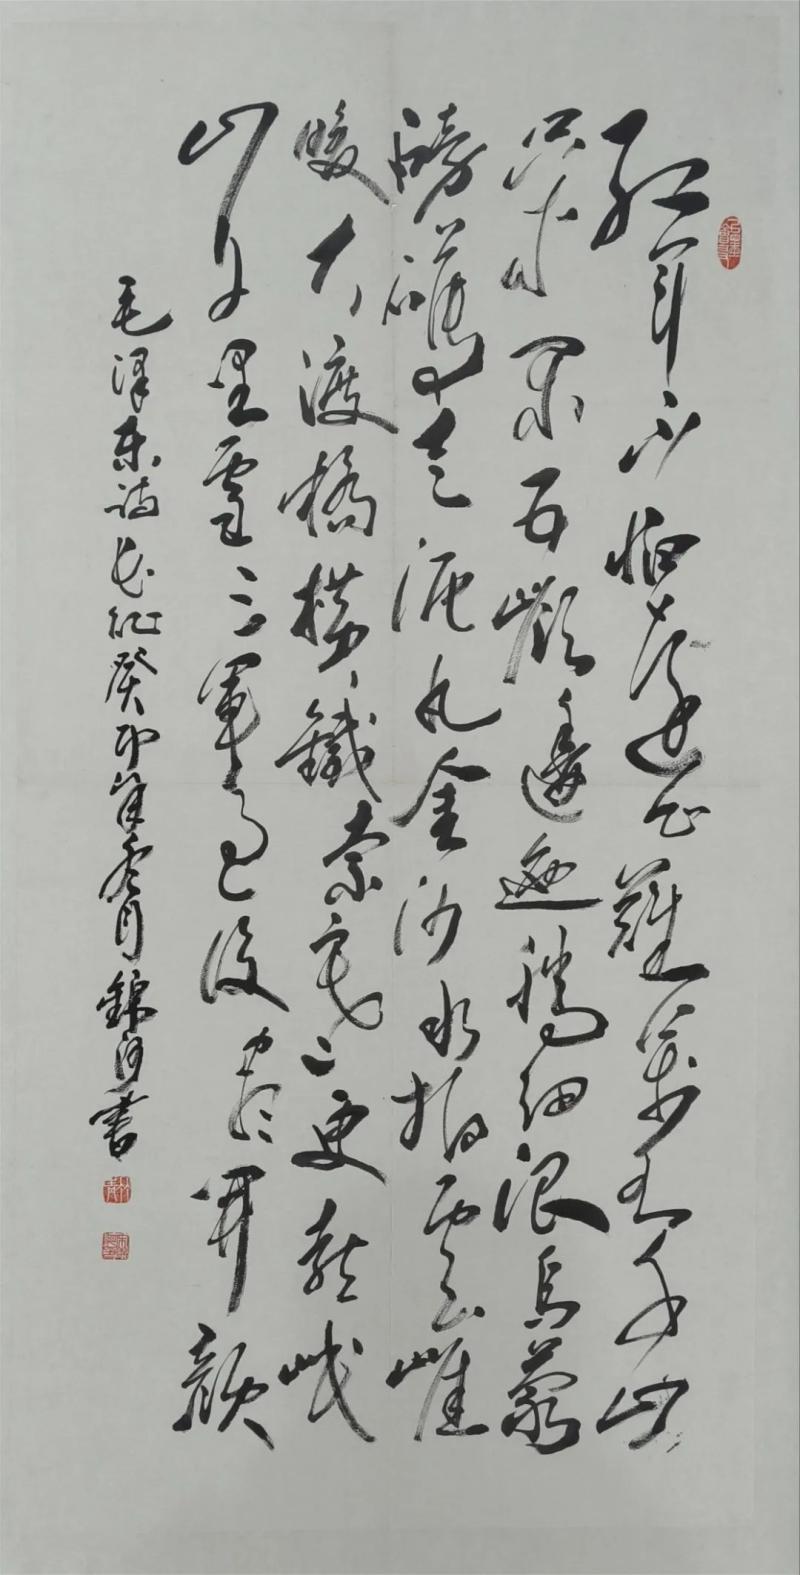 紅軍不怕遠征難萬水千山
只等閑五嶺逶迤騰細浪烏蒙
磅礴走泥丸金沙水拍雲崖
暖大渡橋橫鐵索寒更喜岷
山千里雪三軍過後盡開顏
毛澤東詩長征癸卯年冬月錦河書